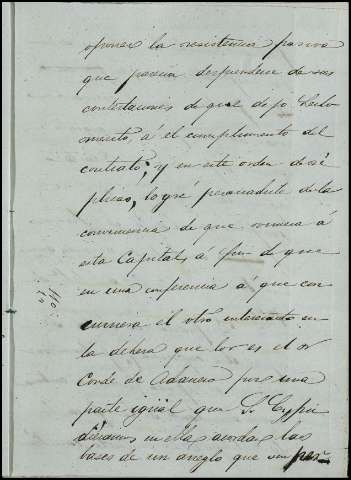 oponer la resistencia pasiva
que parecia desprenderse de sus
contestaciones de que dejo hecho
merito, á el cumplimento del
contrato; y en este orden de sú
plicas, logré persuadirle de la
conveniencia de que viniera á
esta Capital, á fin de que
en una conferencia á que con
curriera el otro interesado en
la dehesa que lo es el Sr
Conde de Adanero por una
parte igual que S.
dieramos en ellas acordar las
bases de un arreglo que sin per-